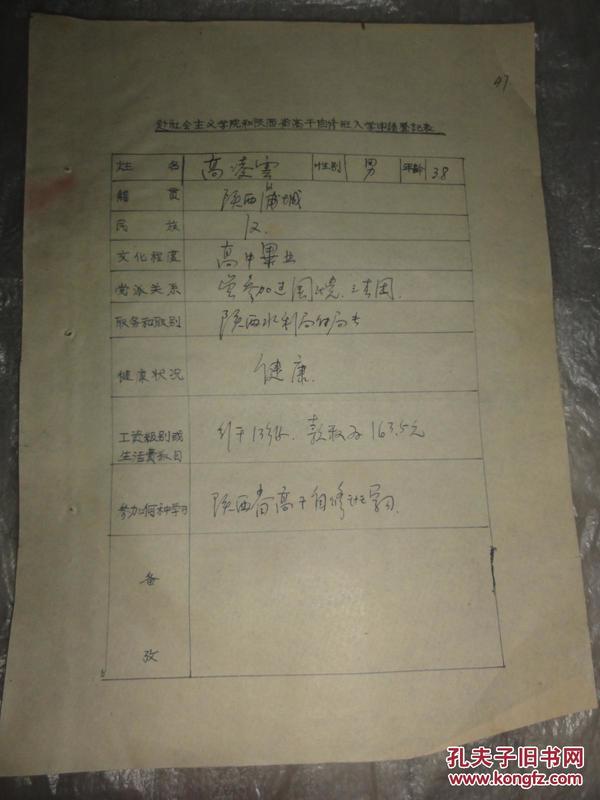 47
赴社会主义学院和陕西省高干自修班入学申请登记表
姓名 高凌雲 性别 男 年龄 38
籍貫 陕西蒲城
民族 汉
文化程度 高中畢业
党派关系 曾参加过国民党、三青团.
职务和职别 陕西水利局付局长
健康状况 健康
工资级别或
生活費数目 行干13级、款数为163.5元
参加何种学习 陕西省高干自修班学习.
备
攷
孔夫子旧书网
www.kongfz.com